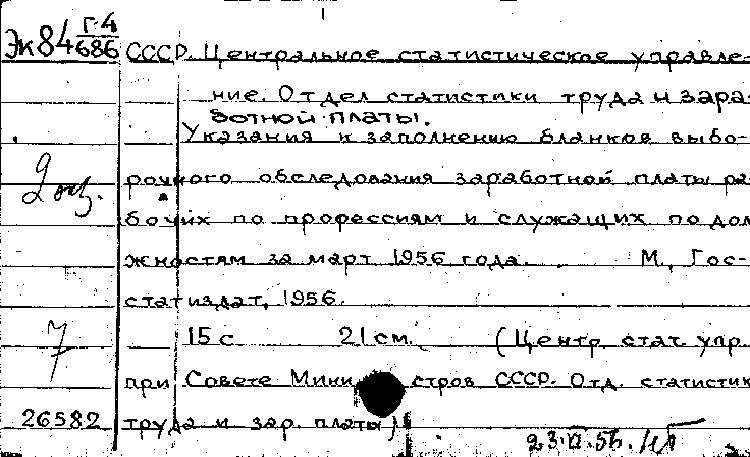 Эк84 Г-4/686
СССР. Центральное статистическое управле-
ние. Отдел статистики труда и зара-
ботной платы.
Указания к заполнению бланков выбо-
2 экз.
рочного обследования заработной платы ра-
бочих по профессиям и служащих по дол-
жностям за март 1956 года. М., Гос-
статиздат, 1956.
7
15 с. 21 см. (Центр. стат. упр.
при Совете Министров СССР. Отд. статистик
26582 труда и зар. платы)